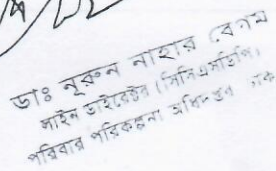 ডাঃ নূরুন নাহার বেগম
লাইন ডাইরেক্টর (সিসিএসডিপি)
পরিবার পরিকল্পনা অধিদপ্তর